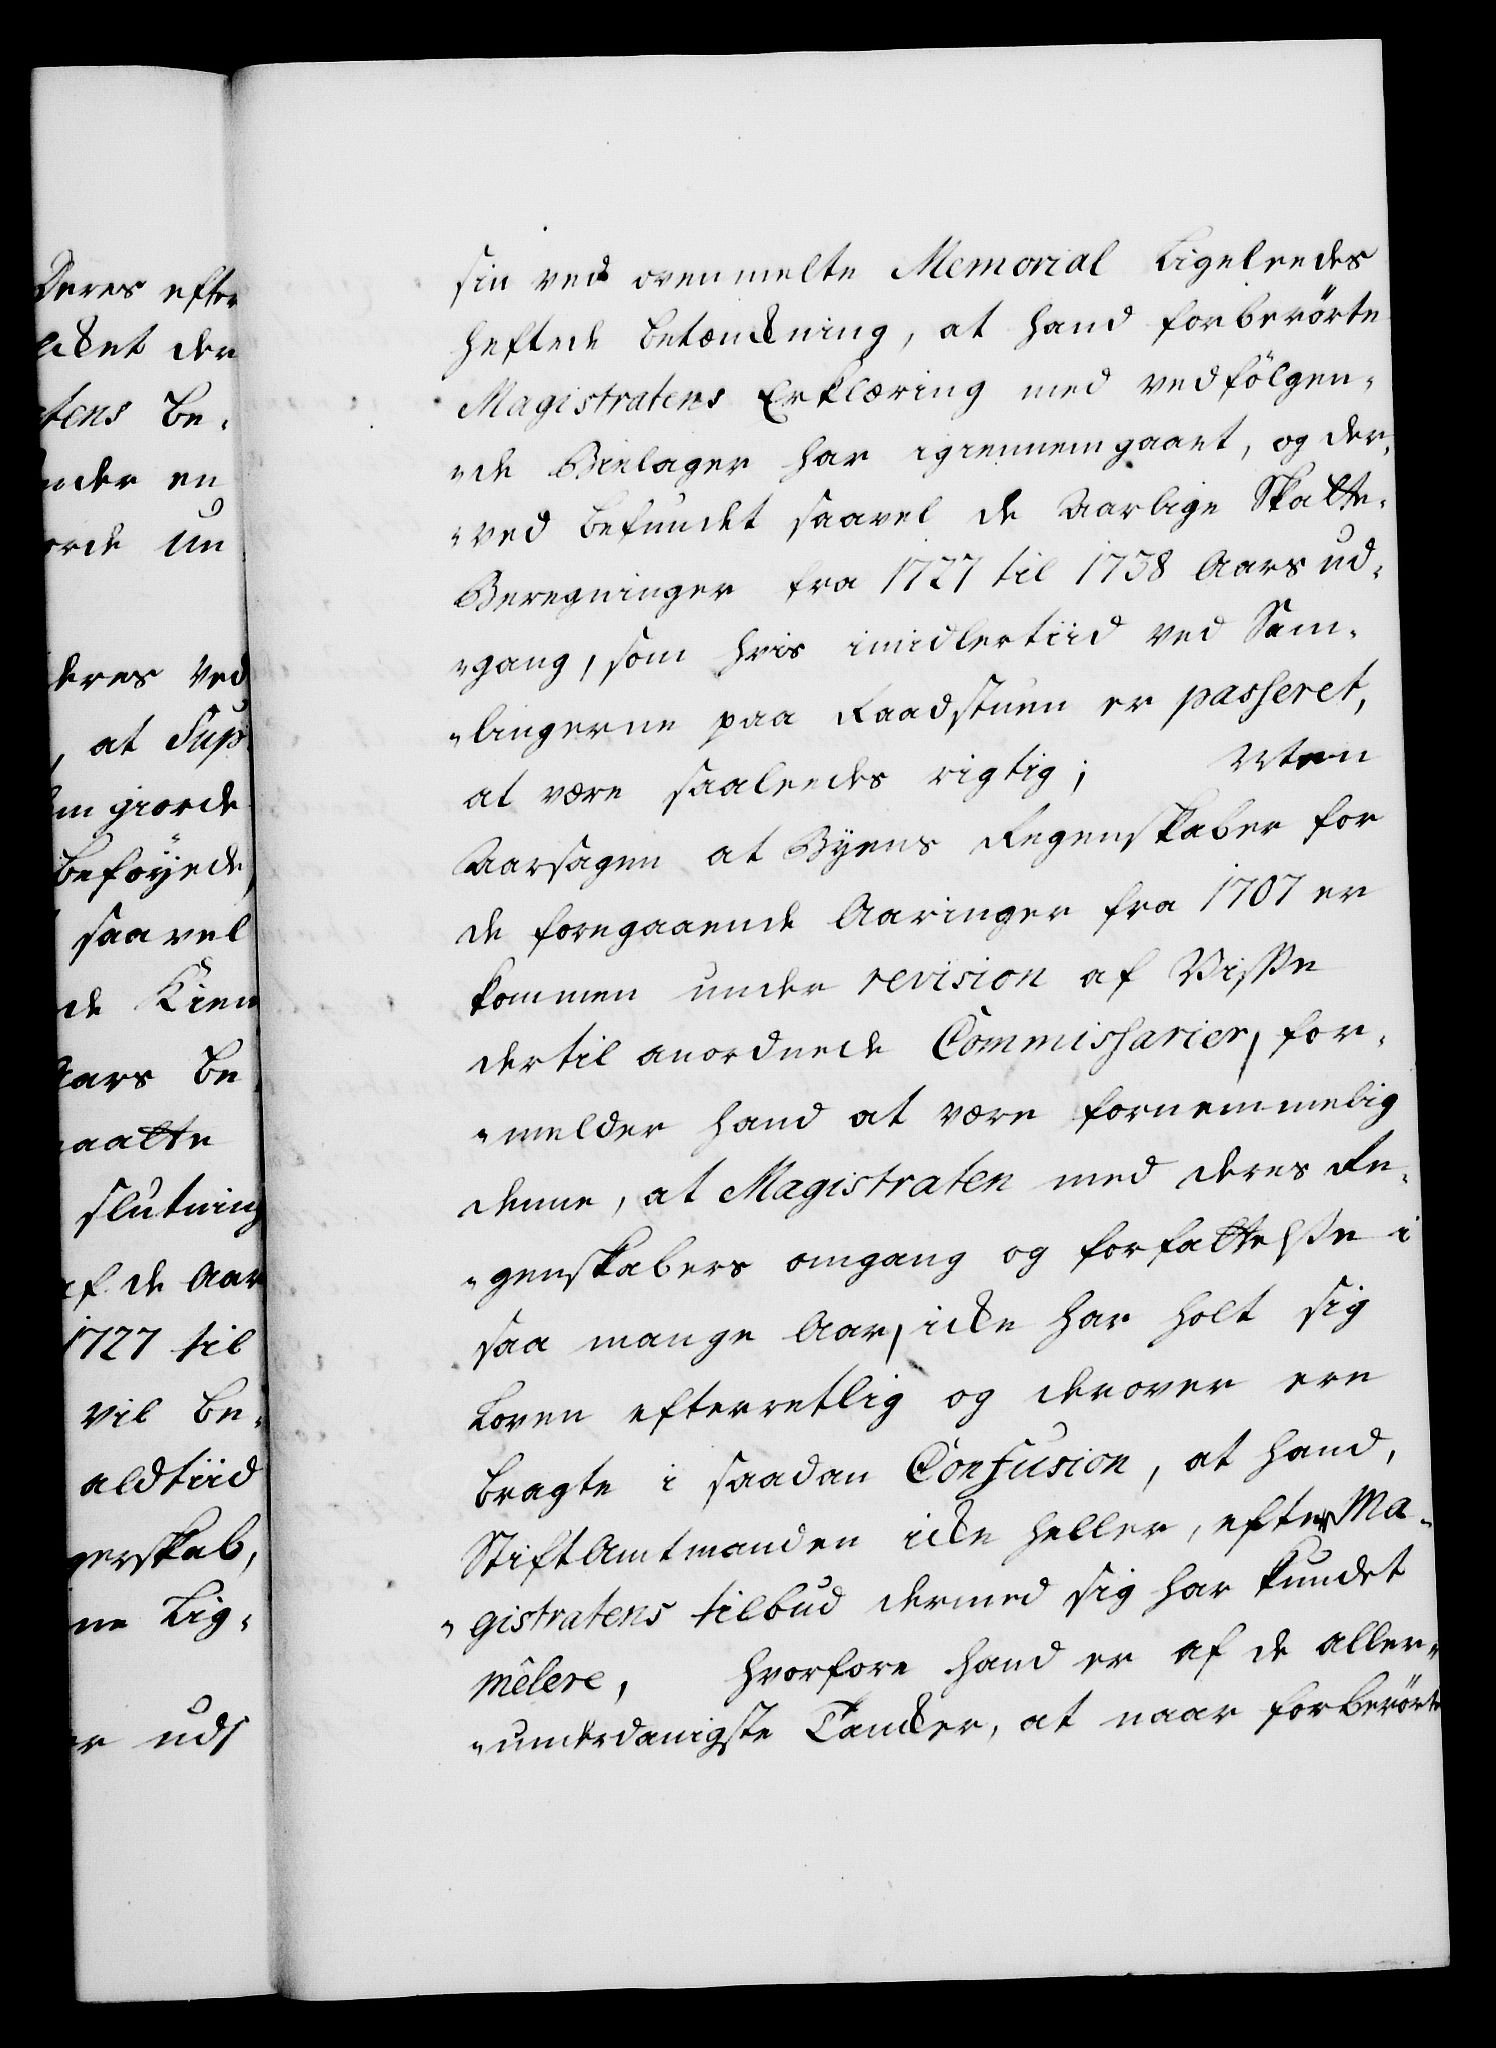 Deres efter
icket der
tens be-
nder en
orde un
deres ved
, at Sup
em giorde
beföyede,
saavel
de Kien
Aars Be
maatte
slutning
af de Aar
1727 til
vil be-
altiid
gerskab,
ne Lig-
er uds
sin ved ovenmelte Memorial ligeleedes
heftede betænckning, at hand forberörte
Magistratens Erklæring med vedfölgen-
-de Bielager har igiennemgaaet, og der-
-ved befundet saavel de Aarlige Skatte-
Beregninger fra 1727 til 1738 Aars ud-
-gang, som hvis imidlertiid ved Sam-
-lingerne paa Raadstuen er passeret,
at være saaleedes rigtig; Men
Aarsagen at Byens Regenskaber for
de foregaaende Aaringer fra 1707 er
kommen under revision af Visse
dertil anordnede Commissarier, for-
-melder hand at være fornemmelig
denne, at Magistraten med deres Re-
-genskabers omgang og forfattelsse i
saa mange Aar, icke har holt sig
Loven efterretlig og derover ere
bragte i saadan Confusion, at hand,
Stiftamtmanden icke heller, efter Ma-
-gistratens tilbud dermed sig har kundet
mêlere, hvorfore hand er af de aller-
-underdanigste Tancker, at naar forberörte